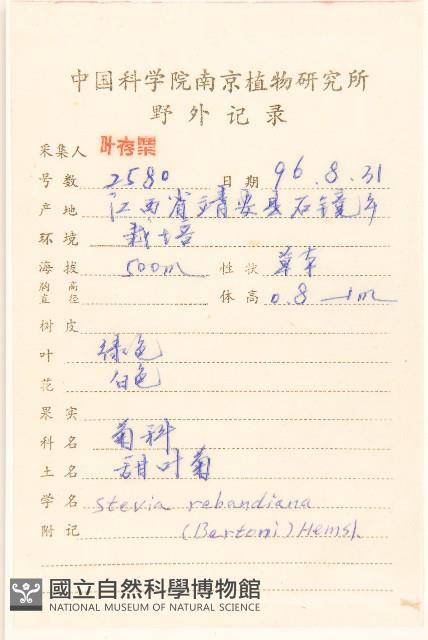 中国科学院南京植物研究所
野外记录
采集人 叶存粟
号数 2580 日期 96.8.31
产地 江西省靖安县石镜乡
环境 栽培
海拔 500m 性状 草本
胸高直径 体高 0.8—1m
树皮
叶 绿色
花 白色
果实
科名 菊科
土名 甜叶菊
学名 Stevia rebandiana
附记 (Bertoni) Hemsl.
國立自然科學博物館
NATIONAL MUSEUM OF NATURAL SCIENCE